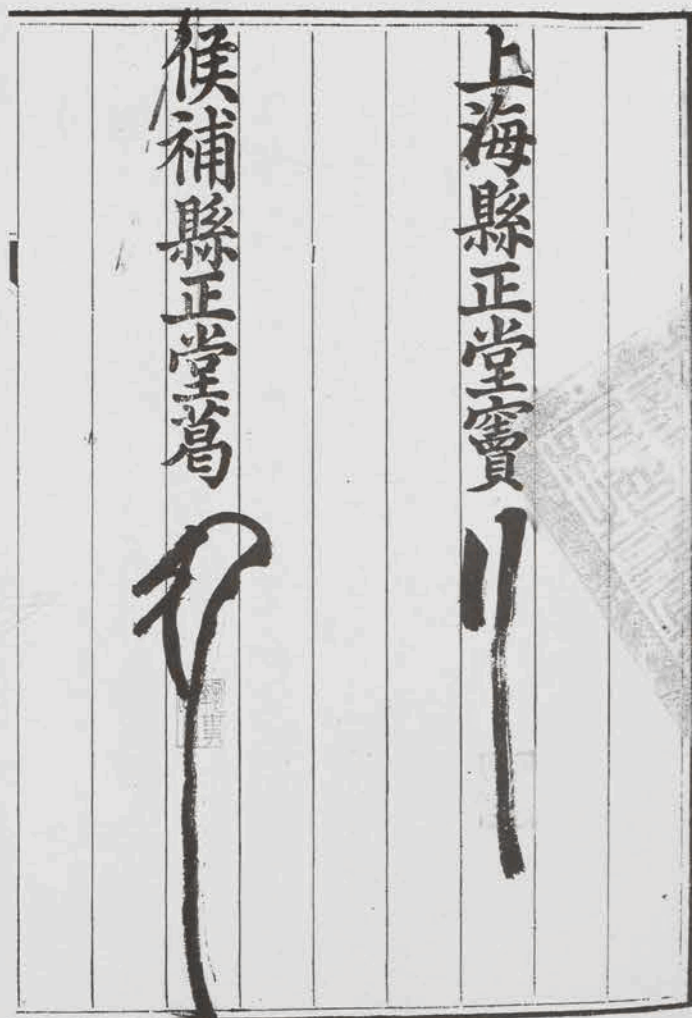 上海縣正堂竇
候補縣正堂葛